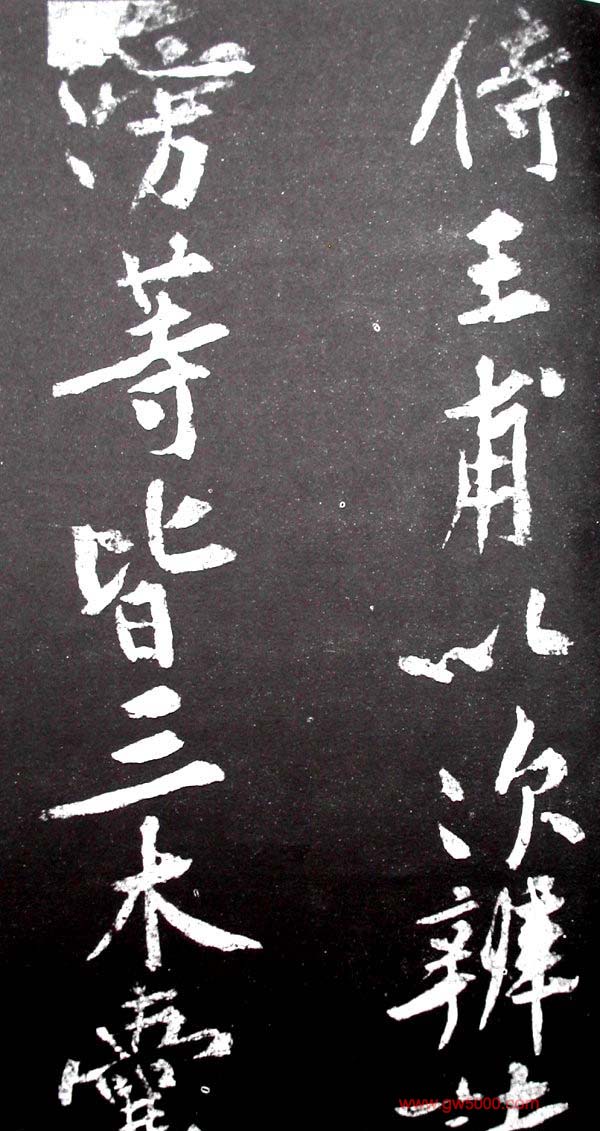 侍王甫以次辨
滂等皆三木囊
www.gw5000.com